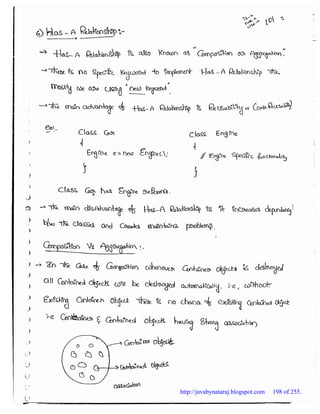 101
6) Has-A Relationship:-
→ Has-A Relationship is also known as "Composition or Aggregation".
→ There is no specific keyword to implement Has-A Relationship the
mostly we are using "new keyword".
→ The main advantage of Has-A Relationship is Reusability or (Code Reusability)
Ex:-
class Car
{
Engine e = new Engine();
}
class Engine
{
// Engine specific functionality
}
class Car has Engine reference.
→ The main disadvantage of Has-A Relationship is it increases dependency
b/w the classes and creates maintaince problems.
Composition Vs Aggregation:-
→ In the case of Composition whenever Container object is destroyed
all Contained objects will be destroyed automatically. i.e., without
Existing Container object there is no chance of existing Contained object
i.e Container & Contained objects having Strong association.
→ Container object
→ Contained objects
association
http://javabynataraj.blogspot.com 198 of 255.